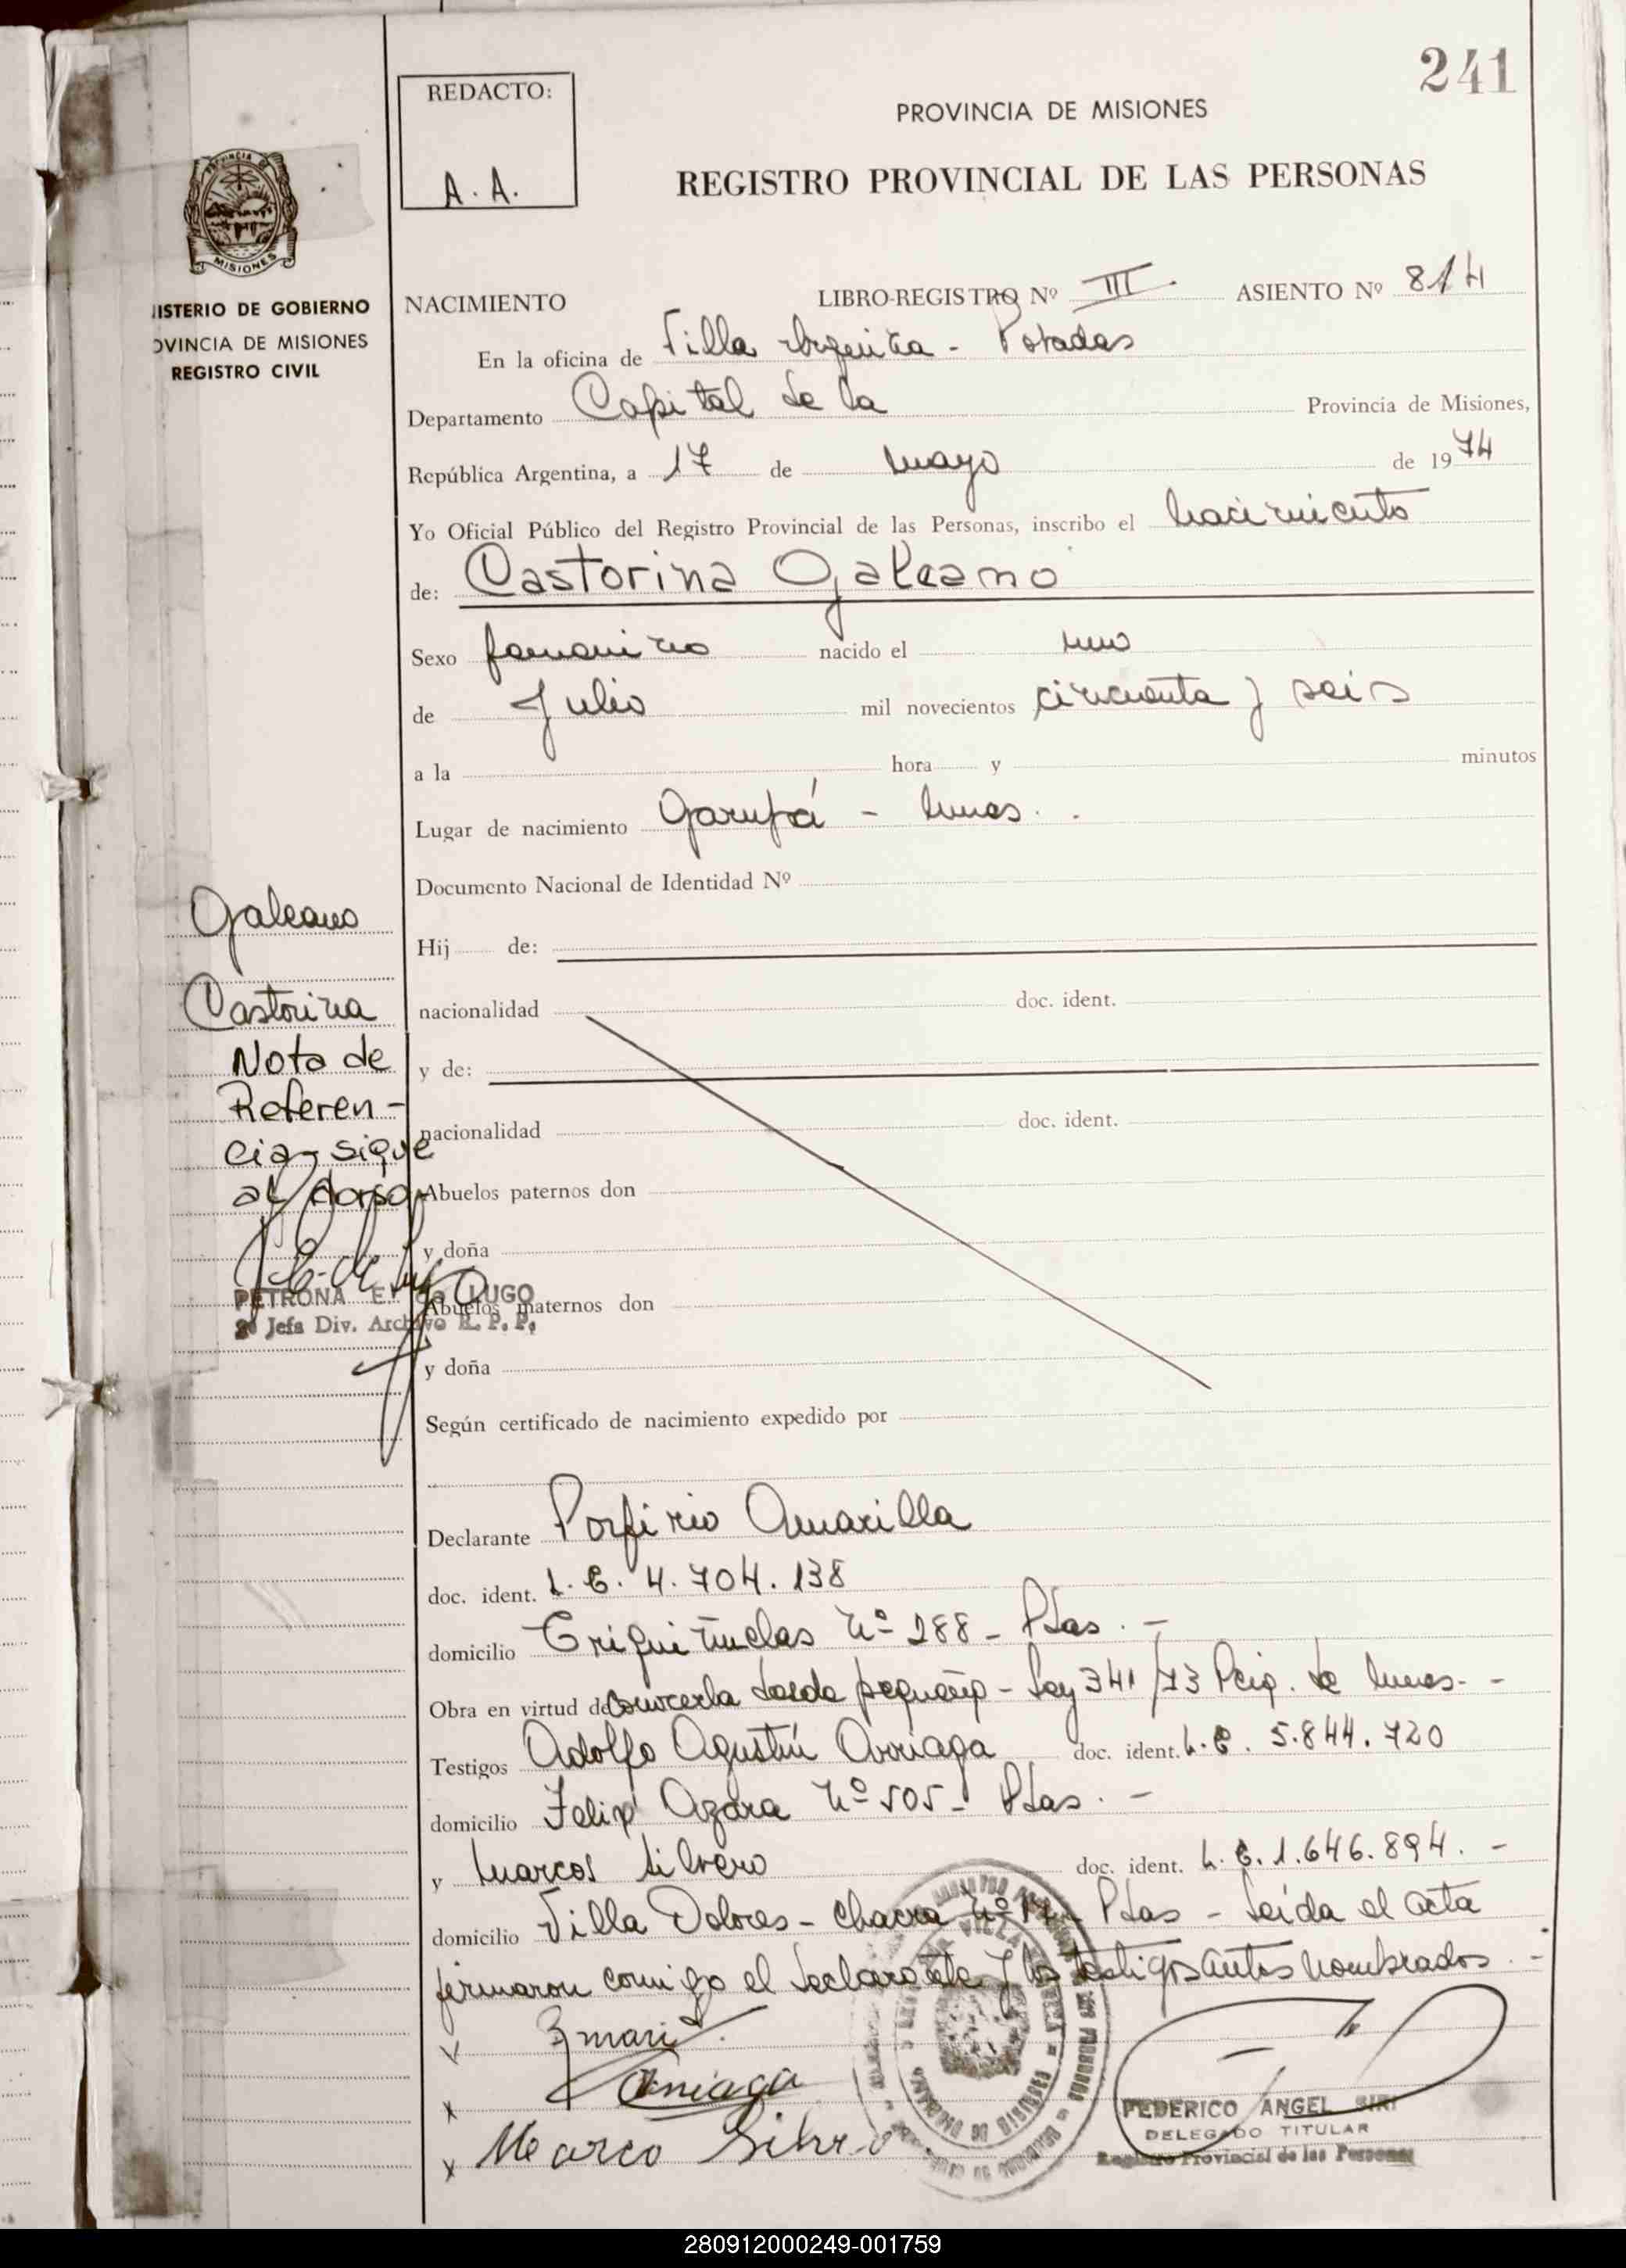 241
REDACTO:
A. A.
PROVINCIA DE MISIONES
REGISTRO PROVINCIAL DE LAS PERSONAS
PROVINCIA DE
MISIONES
ISTERIO DE GOBIERNO
OVINCIA DE MISIONES
REGISTRO CIVIL
NACIMIENTO LIBRO-REGISTRO Nº III ASIENTO Nº 814
En la oficina de Villa Urquiza - Posadas
Departamento Capital de la Provincia de Misiones,
República Argentina, a 17 de mayo de 1974
Yo Oficial Público del Registro Provincial de las Personas, inscribo el nacimiento
de: Castorina Galeano
Sexo femenino nacido el uno
de Julio mil novecientos cincuenta y seis
a la hora y minutos
Lugar de nacimiento Garupá - Mnes.
Documento Nacional de Identidad Nº
Hij de:
nacionalidad doc. ident.
y de:
nacionalidad doc. ident.
Abuelos paternos don
y doña
Abuelos maternos don
y doña
Según certificado de nacimiento expedido por
Galeano
Castorina
Nota de
Referen-
cia, sigue
al dorso
PETRONA E. de LUGO
Jefa Div. Archivo R. P. P.
Declarante Porfirio Amarilla
doc. ident. L. E. 4.704.138
domicilio Nº 288 - Pdas. -
Obra en virtud de conocerla desde pequeña - Ley 341/73 Pcia. de Mnes. -
Testigos Adolfo Agustín Arriaga doc. ident. L. E. 5.844.720
domicilio Felix Azara Nº 505 - Pdas. -
y Marcos Silvero doc. ident. L. E. 1.646.894. -
domicilio Villa Dolores - Chacra Nº Pdas - Leída el acta
firmaron comigo el declarante y los testigos antes nombrados. -
Arriaga
Marco Silvero
FEDERICO ANGEL SIRI
DELEGADO TITULAR
Registro Provincial de las Personas
280912000249-001759